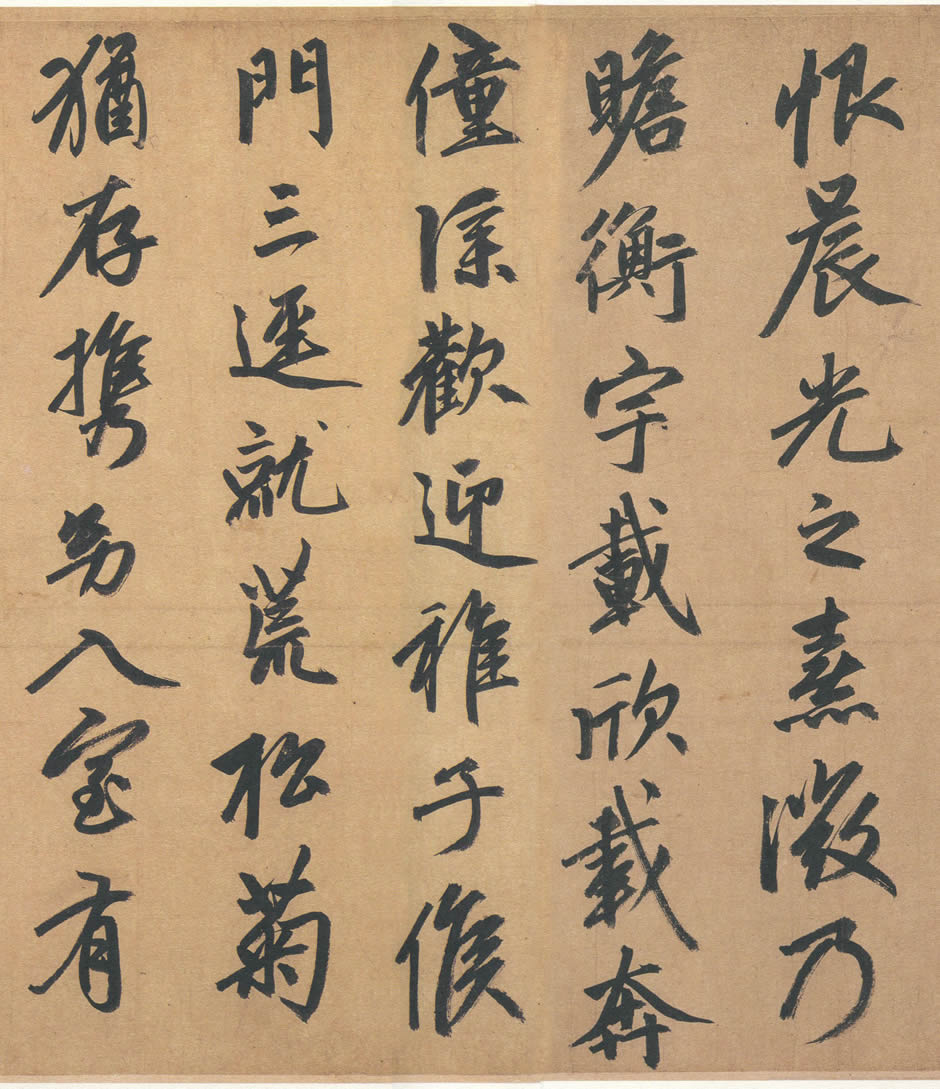 恨晨光之熹微乃
瞻衡宇載欣載奔
僮僕歡迎稚子候
門三逕就荒松菊
猶存携幼入室有